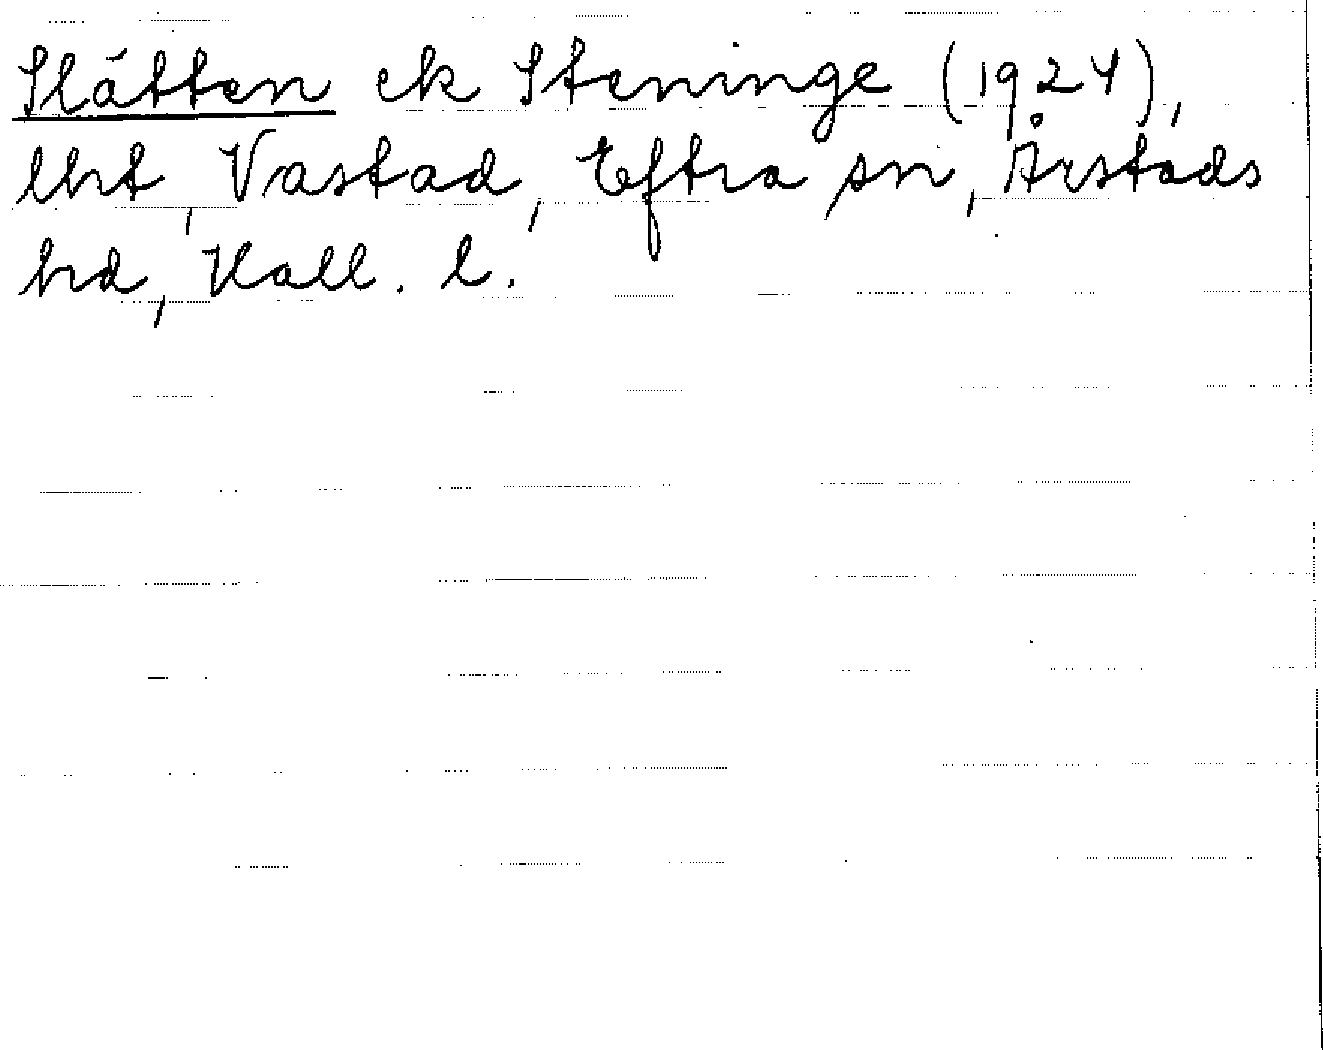 Slätten ek Steninge (1924),
lht, Vastad, Eftra sn, Årstads
hd, Hall. l.